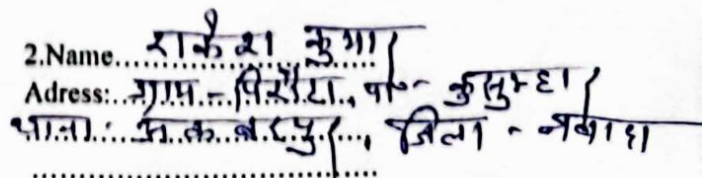 2.Name.... राकेश कुमार
Adress:.. ग्राम - पिरौटा, पो - कुसुम्हा
थाना:.. अकबरपुर, जिला - नवादा